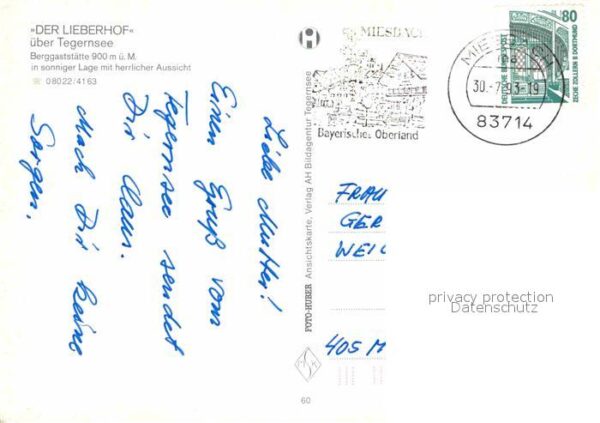 »DER LIEBERHOF«
über Tegernsee
Berggaststätte 900 m ü. M.
in sonniger Lage mit herrlicher Aussicht
☏ 08022/4163
Liebe Mutter!
Einen Gruß vom
Tegernsee sendet
Dir
Mach Dir keine
Sorgen.
FOTO-HUBER Ansichtskarte, Verlag AH Bildagentur Tegernsee
60
MIESBACH
Bayerisches Oberland
30.-7.93-19
83714
80
DEUTSCHE BUNDESPOST
ZECHE ZOLLERN II DORTMUND
FRAU
GER
WEI
405 M
privacy protection
Datenschutz